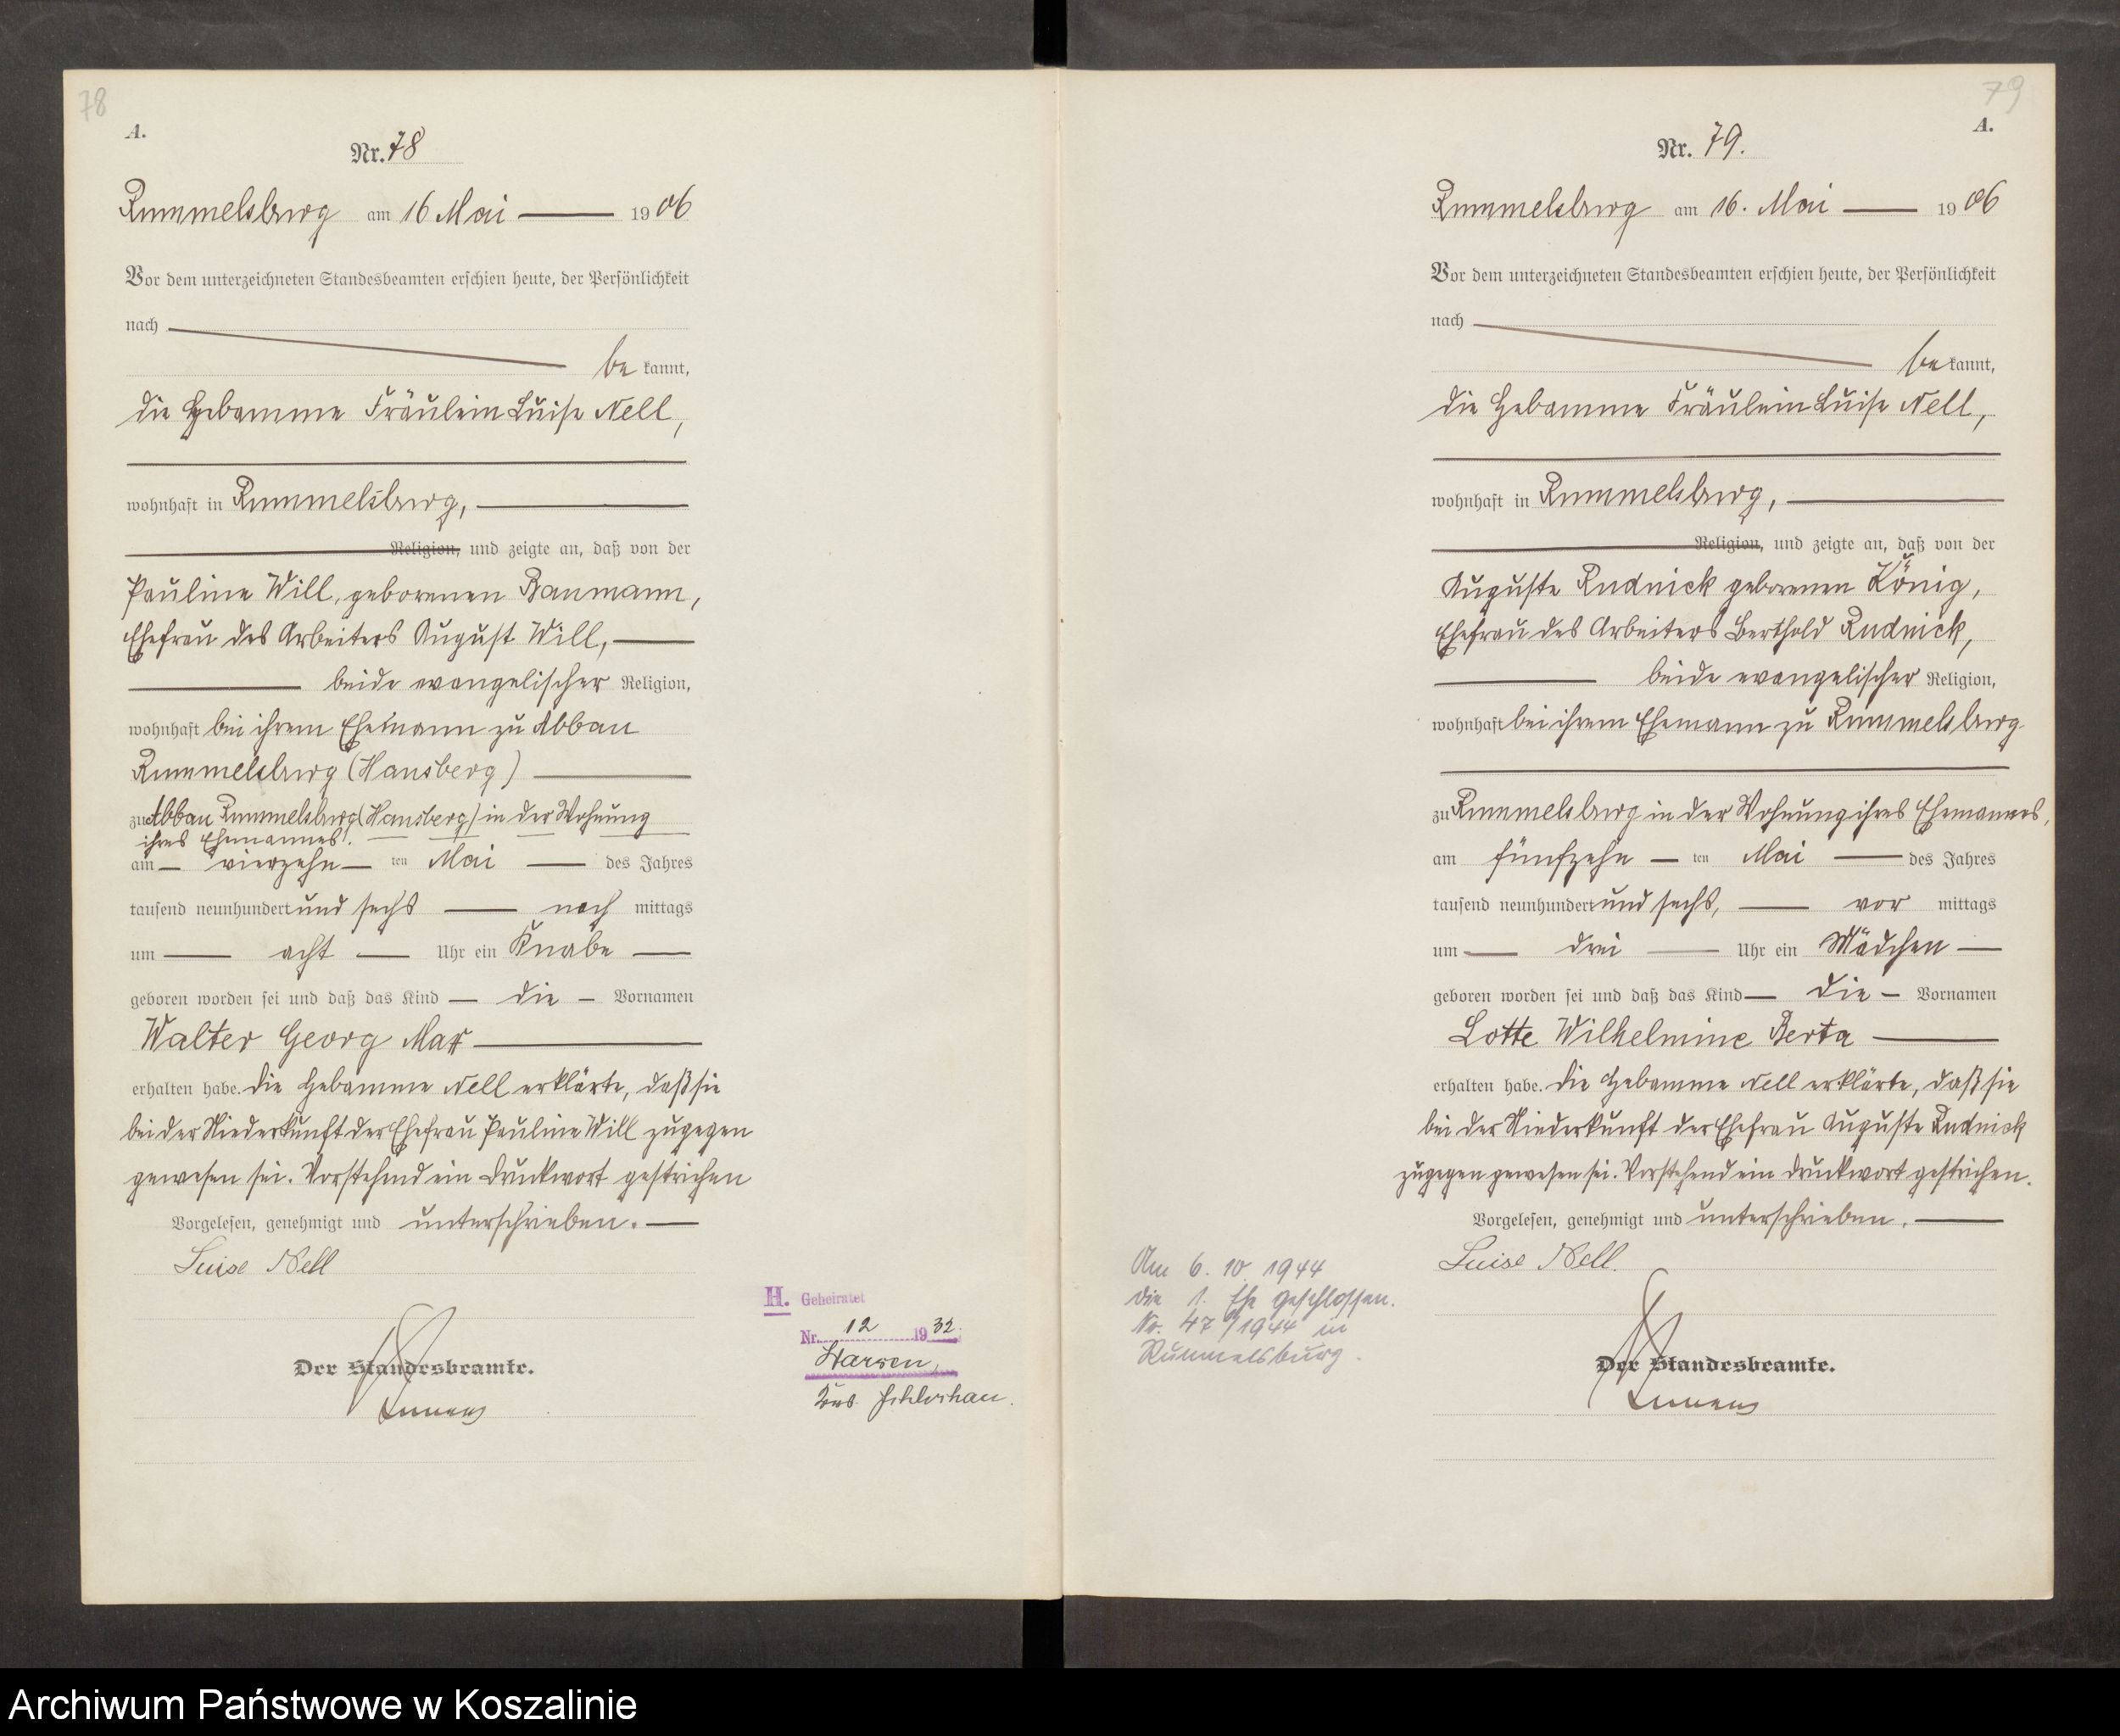 78
A.
Nr. 78
Rummelsburg am 16 Mai 1906
Vor dem unterzeichneten Standesbeamten erschien heute, der Persönlichkeit
nach
be kannt,
die Hebamme Fräulein Luise Nell,
wohnhaft in Rummelsburg,
Religion, und zeigte an, daß von der
Pauline Will, geborenen Baumann,
Ehefrau des Arbeiters August Will,
beide evangelischer Religion,
wohnhaft bei ihrem Ehemann zu Abbau
Rummelsburg (Hansberg)
zu Abbau Rummelsburg (Hansberg) in der Wohnung
ihres Ehemannes.
am vierzehn ten Mai des Jahres
tausend neunhundert und sechs nach mittags
um acht Uhr ein Knabe
geboren worden sei und daß das Kind die Vornamen
Walter Georg Max
erhalten habe. Die Hebamme Nell erklärte, daß sie
bei der Niederkunft der Ehefrau Pauline Will zugegen
gewesen sei. Vorstehend ein Druckwort gestrichen
Vorgelesen, genehmigt und unterschrieben.
Luise Nell
Der Standesbeamte.
H. Geheiratet
Nr. 12 1932.
79
A.
Nr. 79.
Rummelsburg am 16. Mai 1906
Vor dem unterzeichneten Standesbeamten erschien heute, der Persönlichkeit
nach
be kannt,
die Hebamme Fräulein Luise Nell,
wohnhaft in Rummelsburg,
Religion, und zeigte an, daß von der
Auguste Rudnick geborenen König,
Ehefrau des Arbeiters Berthold Rudnick,
beide evangelischer Religion,
wohnhaft bei ihrem Ehemann zu Rummelsburg
zu Rummelsburg in der Wohnung ihres Ehemannes,
am fünfzehn ten Mai des Jahres
tausend neunhundert und sechs, vor mittags
um drei Uhr ein Mädchen
geboren worden sei und daß das Kind die Vornamen
Lotte Wilhelmine Berta
erhalten habe. Die Hebamme Nell erklärte, daß sie
bei der Niederkunft der Ehefrau Auguste Rudnick
zugegen gewesen sei. Vorstehend ein Druckwort gestrichen.
Vorgelesen, genehmigt und unterschrieben.
Luise Nell.
Der Standesbeamte.
Am 6. 10. 1944
die 1. Ehe geschlossen.
Nr. 47/1944 in
Rummelsburg.
Archiwum Państwowe w Koszalinie